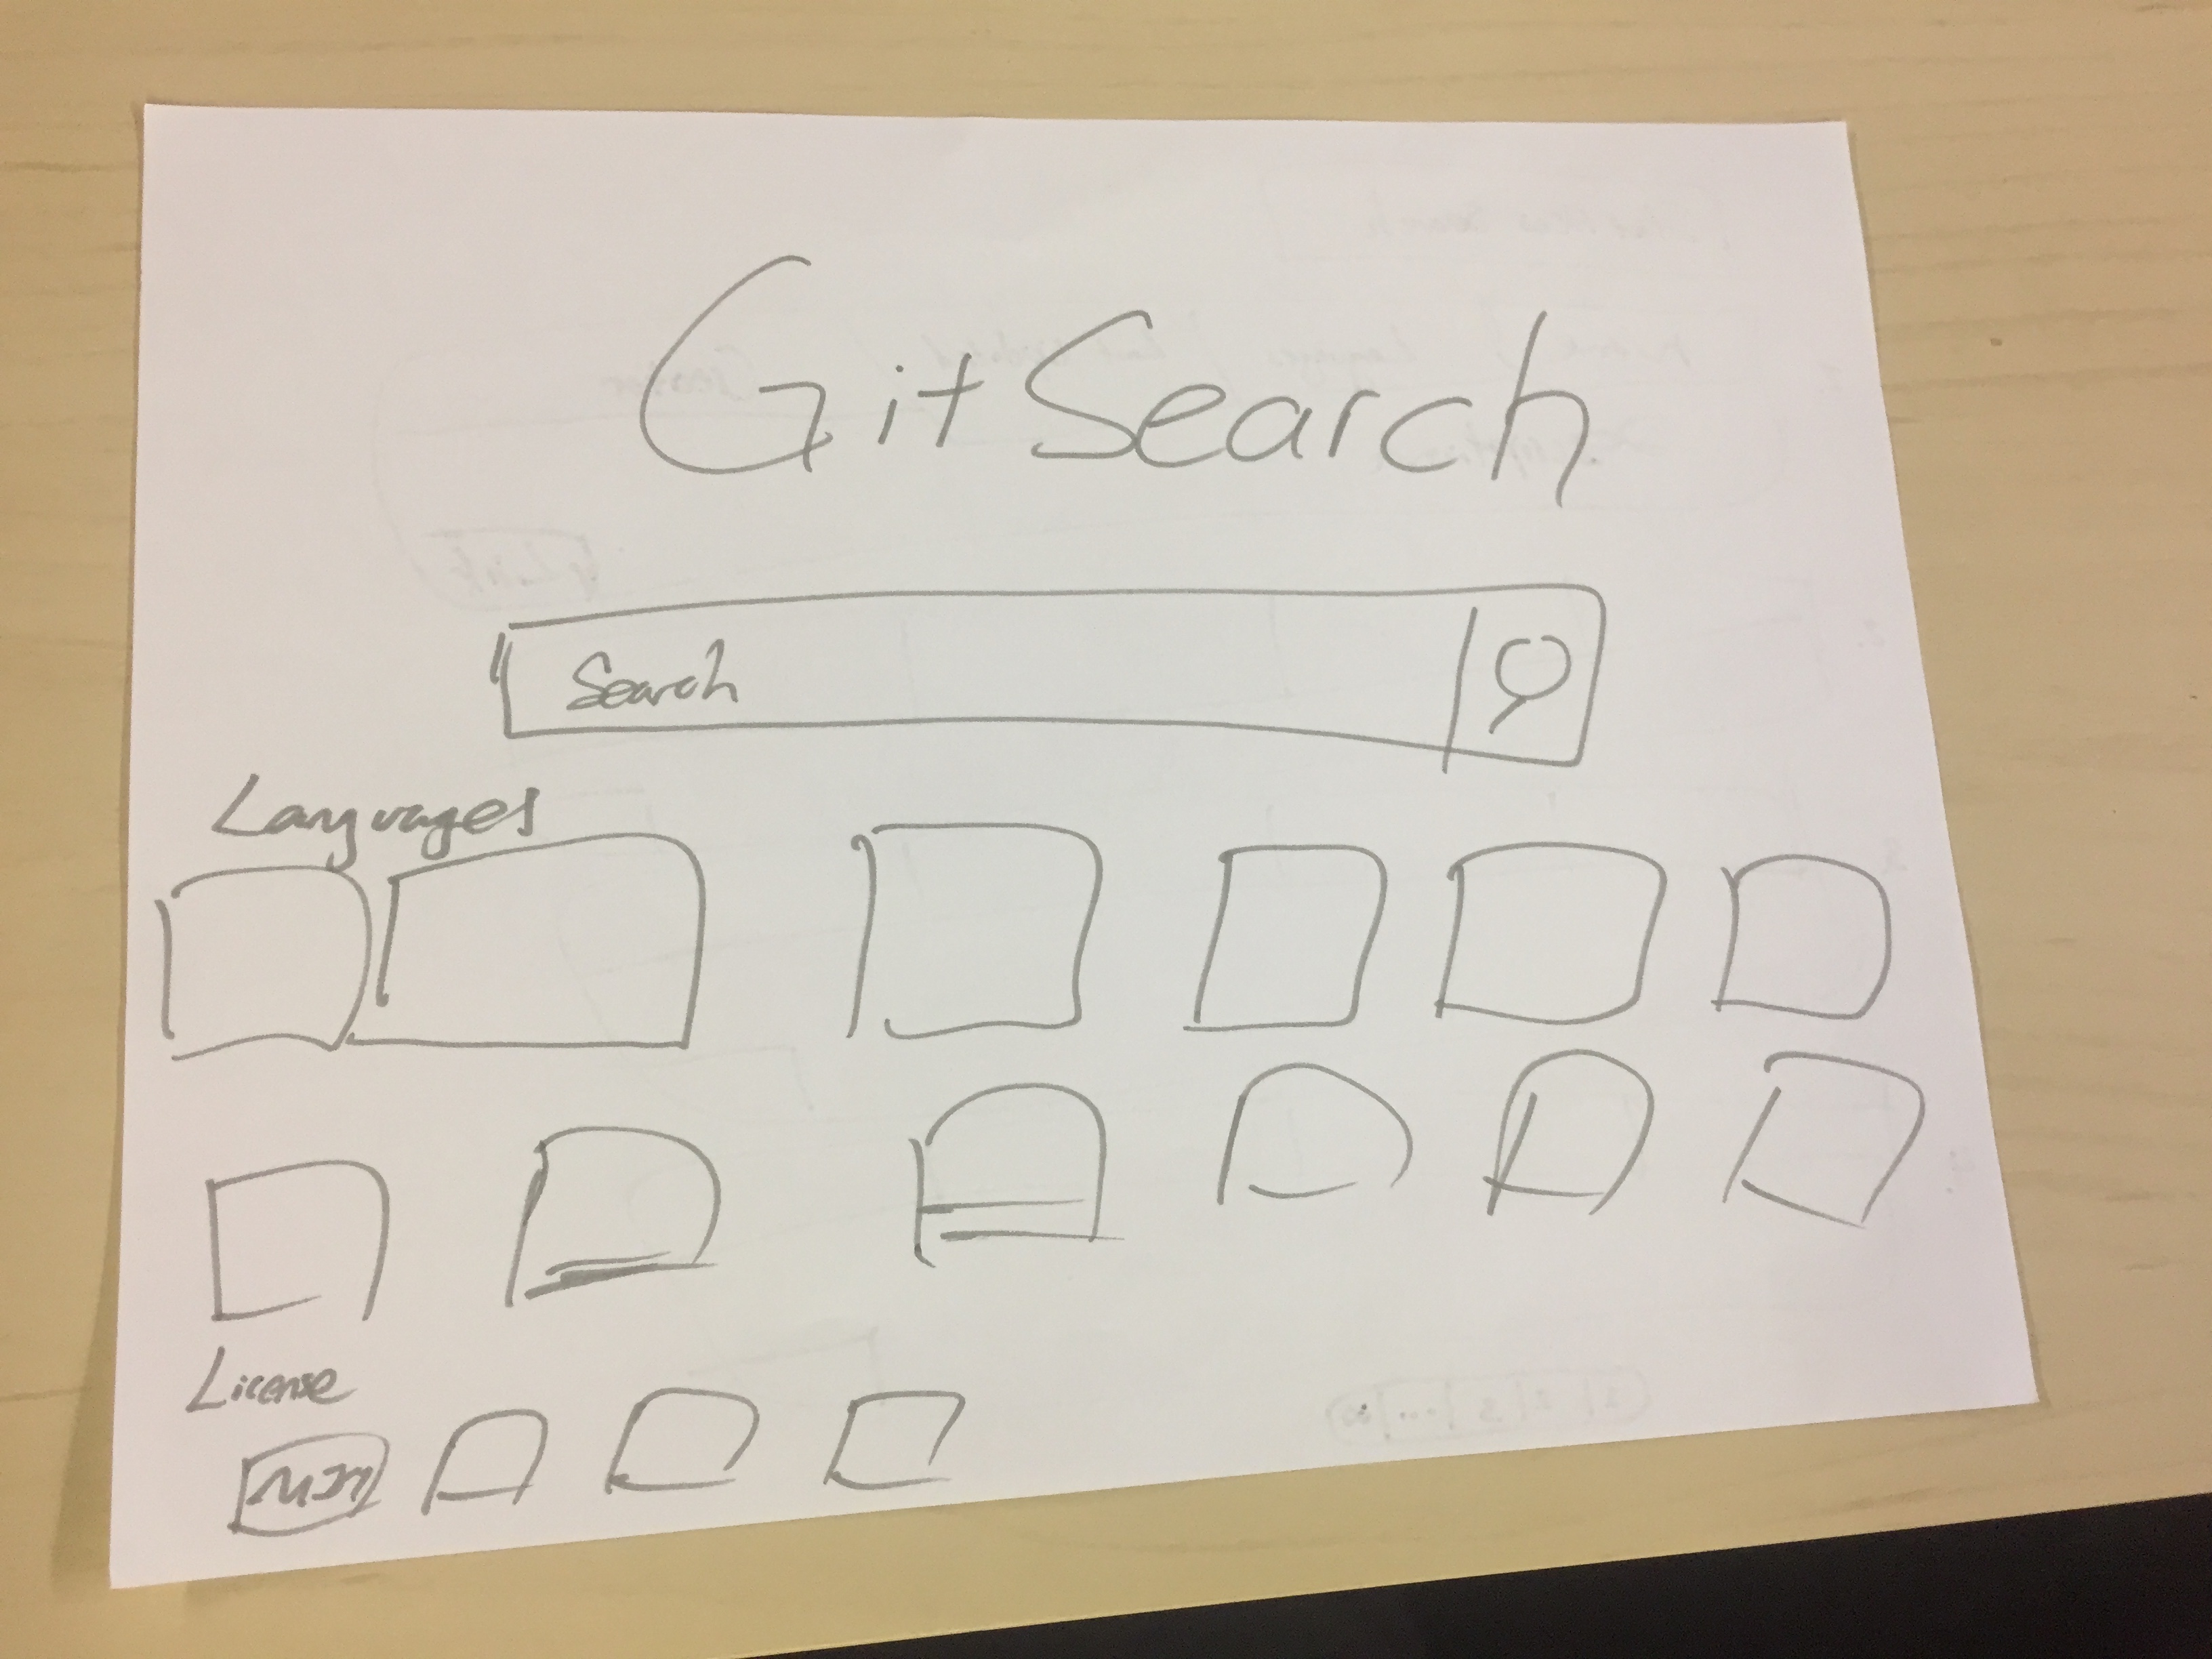 GitSearch
Search
Languages
License